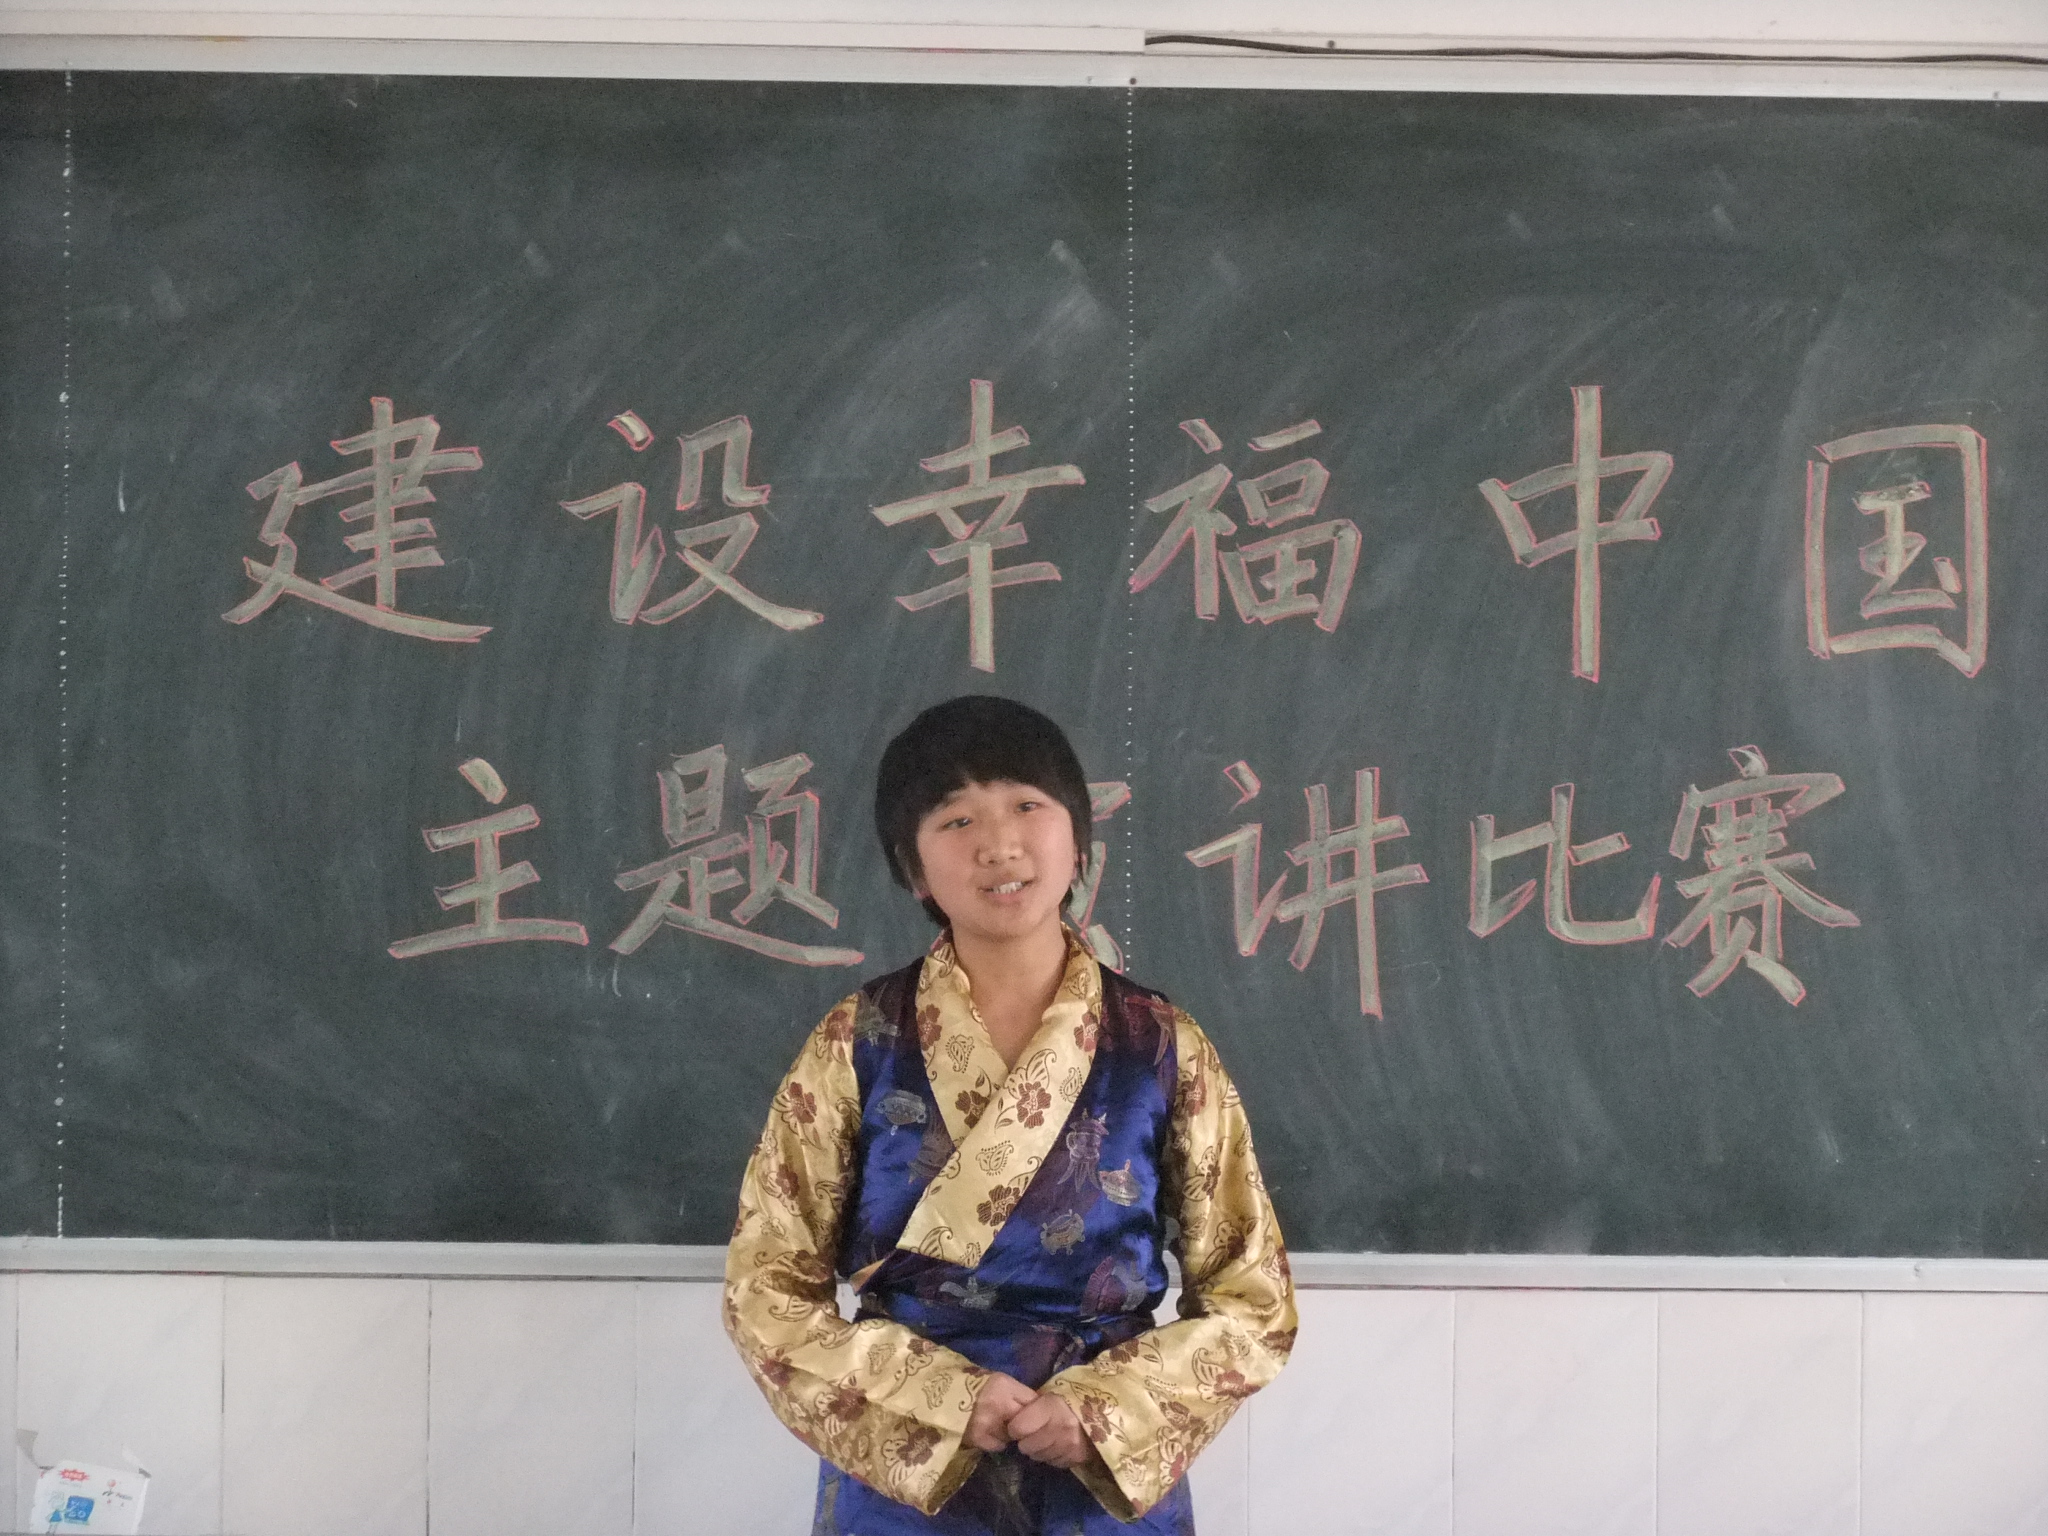 建设幸福中国
主题 讲比赛